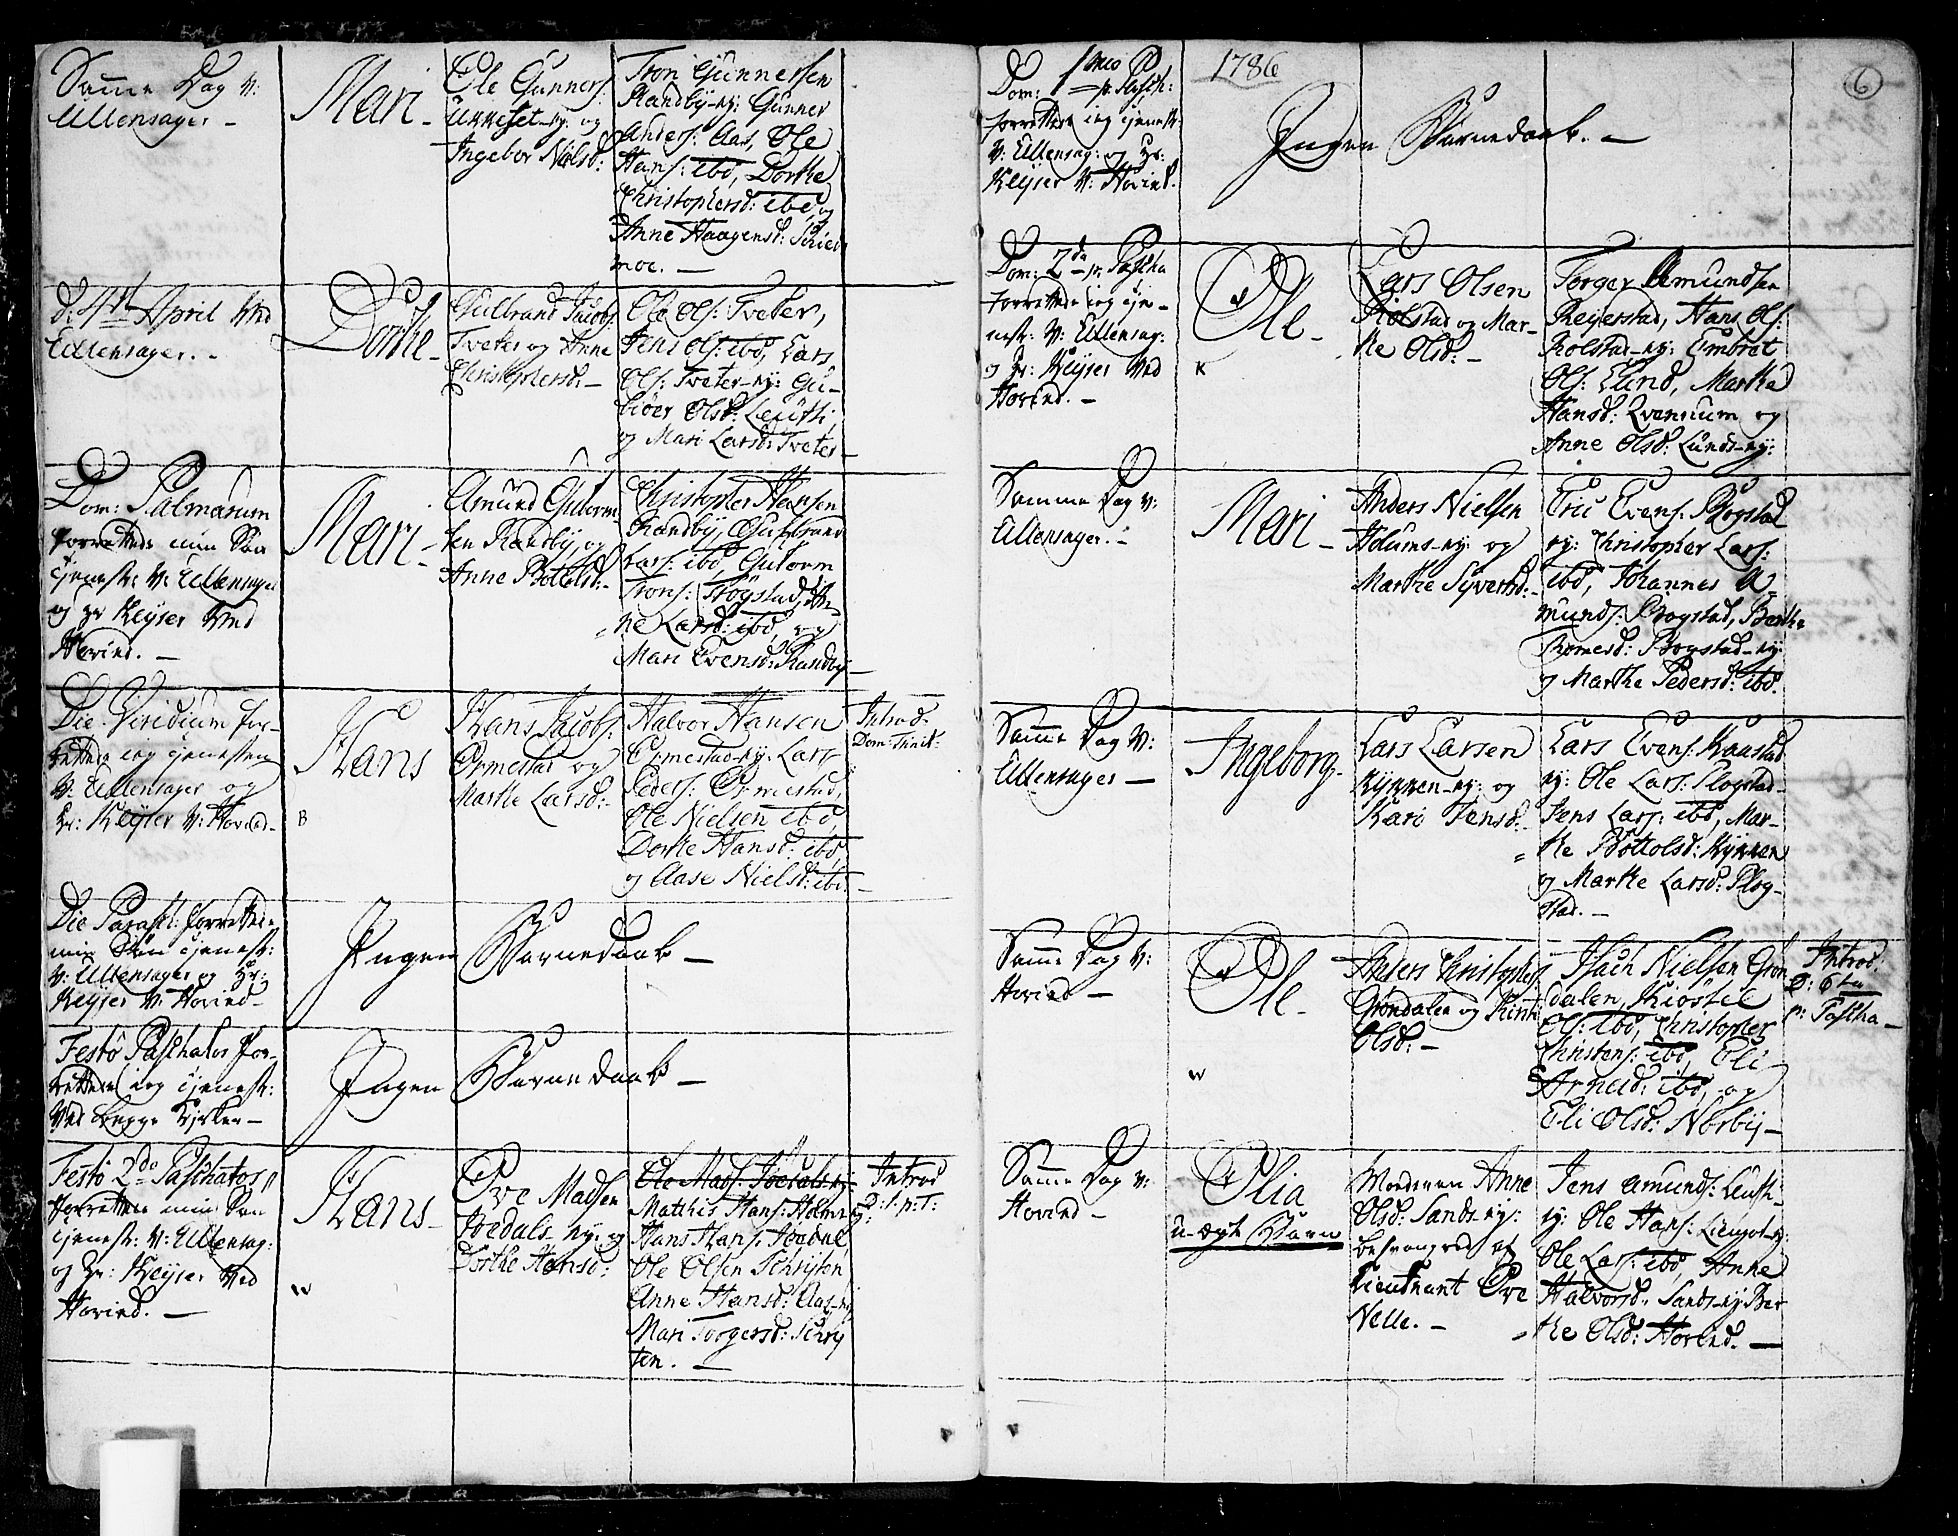 Samme Dag v:
Ullensager –
Mari –
Ole Gunners:
ny: og
Ingebor Nielsd:
Tron Gunnersen
Randby-ny: Gunner
Anders: Aas, Ole
Hans: ibd, Dorthe
Christophersd: ibd, og
Anne Haagensd:
moe. –
d. 4de April ved
Ullensager. –
Dorthe –
Gulbrand Jacobs:
Tveter og Anne
Christophersd: –
Ole Ols: Tveter,
Jens Ols: ibd, Lars
Ols: Tveter-ny: Gu-
biør Olsd:
og Mari Larsd: Tveter –
Dom: Palmarum
forrettede min Søn
tjenest: v: Ullensager
og Hr Keyser ved
Hovind. –
Mari –
Amund Gutorm-
sen Randby, og
Anne Bottolsd: –
Christopher Hansen
Randby, Gulbrand
Lars: ibd, Gutorm
Trons: Trøgstad, An-
ne Larsd: ibd, og
Mari Evensd: Randby –
Die Viridium for-
rettede jeg tjenesten
v: Ullensager og
Hr: Keyser v: Hovind –
Hans
B
Hans Jacobs:
Ormestad og
Marthe Larsd: –
Halvor Hansen
Ormestad-ny: Lars
Peders: Ormestad,
Ole Nielsen ibd,
Dorthe Hansd: ibd,
og Aase Nielsd: ibd –
Introd.
Dom: Trinit:
Die Parask: forrettede
min Søn tjenest:
v: Ullensager og Hr:
Keyser v: Hovind –
Ingen Barnedaab –
Festo Paschatos for-
rettede jeg tjenest:
ved begge Kirker –
Ingen Barnedaab –
Festo 2do Paschatos
forrettede min Søn
tjenest: v: Ullensag:
og Hr: Keyser ved
Hovind. –
Hans –
Ove Madsen
Joedals-ny: og
Dorthe Hansd:
Ole Mads: Joedals-ny:
Matthis Hans: Holm-ny:
Hans Hans:
Ole Olsen
Anne Hansd: Aas-ny
Mari Torgersd:
ten. –
Introd
D: 1. p: T:
6
1786
Dom: 1ma p: Pasch:
forrettede jeg tjenest:
v: Ullensag: og Hr:
Keyser v: Hovind.
Ingen Barnedaab. –
Dom: 2da p: Pascha
forrettede jeg tje-
nest: v: Ullensag:
og Hr: Keyser ved
Hovind. –
Ole –
K
Lars Olsen
Kolstad og Mar-
the Olsd: –
Torger Amundsen
Reyerstad, Hans Ols:
Kolstad-ny: Embret
Ols: Lund, Marthe
Hansd: Qvernum og
Anne Olsd: Lunds-ny:
Samme Dag v:
Ullensager. –
Mari –
Anders Nielsen
Holums-ny: og
Marthe Syversd: –
Eric Evens: Bogstad
ny: Christopher Lars:
ibd, Johannes A-
munds: Bogstad, Berthe
Tomesd: Bogstad-ny:
og Marthe Pedersd: ibd.
Samme Dag v:
Ullensager –
Ingeborg –
Lars Larsen
Kynnen-ny: og
Kari Jensd: –
Lars Evens:
ny: Ole Lars: Plogstad –
Jens Lars: ibd, Mar-
the Bottolsd: Kynnen
og Marthe Larsd: Plog-
stad. –
Samme Dag v:
Hovind –
Ole –
Anders Christophers:
Grøndalen og
Olsd: –
Isach Nielsen Grøn
dalen, Kiøstel
Ols: ibd, Christopher
Christens: ibd, Eli
Arnesd: ibd, og
Eli Olsd: Nørbÿ –
Introd.
D: 6ta
p: Pascha –
Samme Dag v:
Hovind –
Olia
u-ægt Barn
Moderen Anne
Olsd: Sands-ny:
besvangred af
Lieutnant Ove
Nelle. –
Jens Amunds:
ny: Ole Hans:
Ole Lars: ibd, Anne
Halvorsd: Sands-ny: Ber
the Olsd: Hovind. –